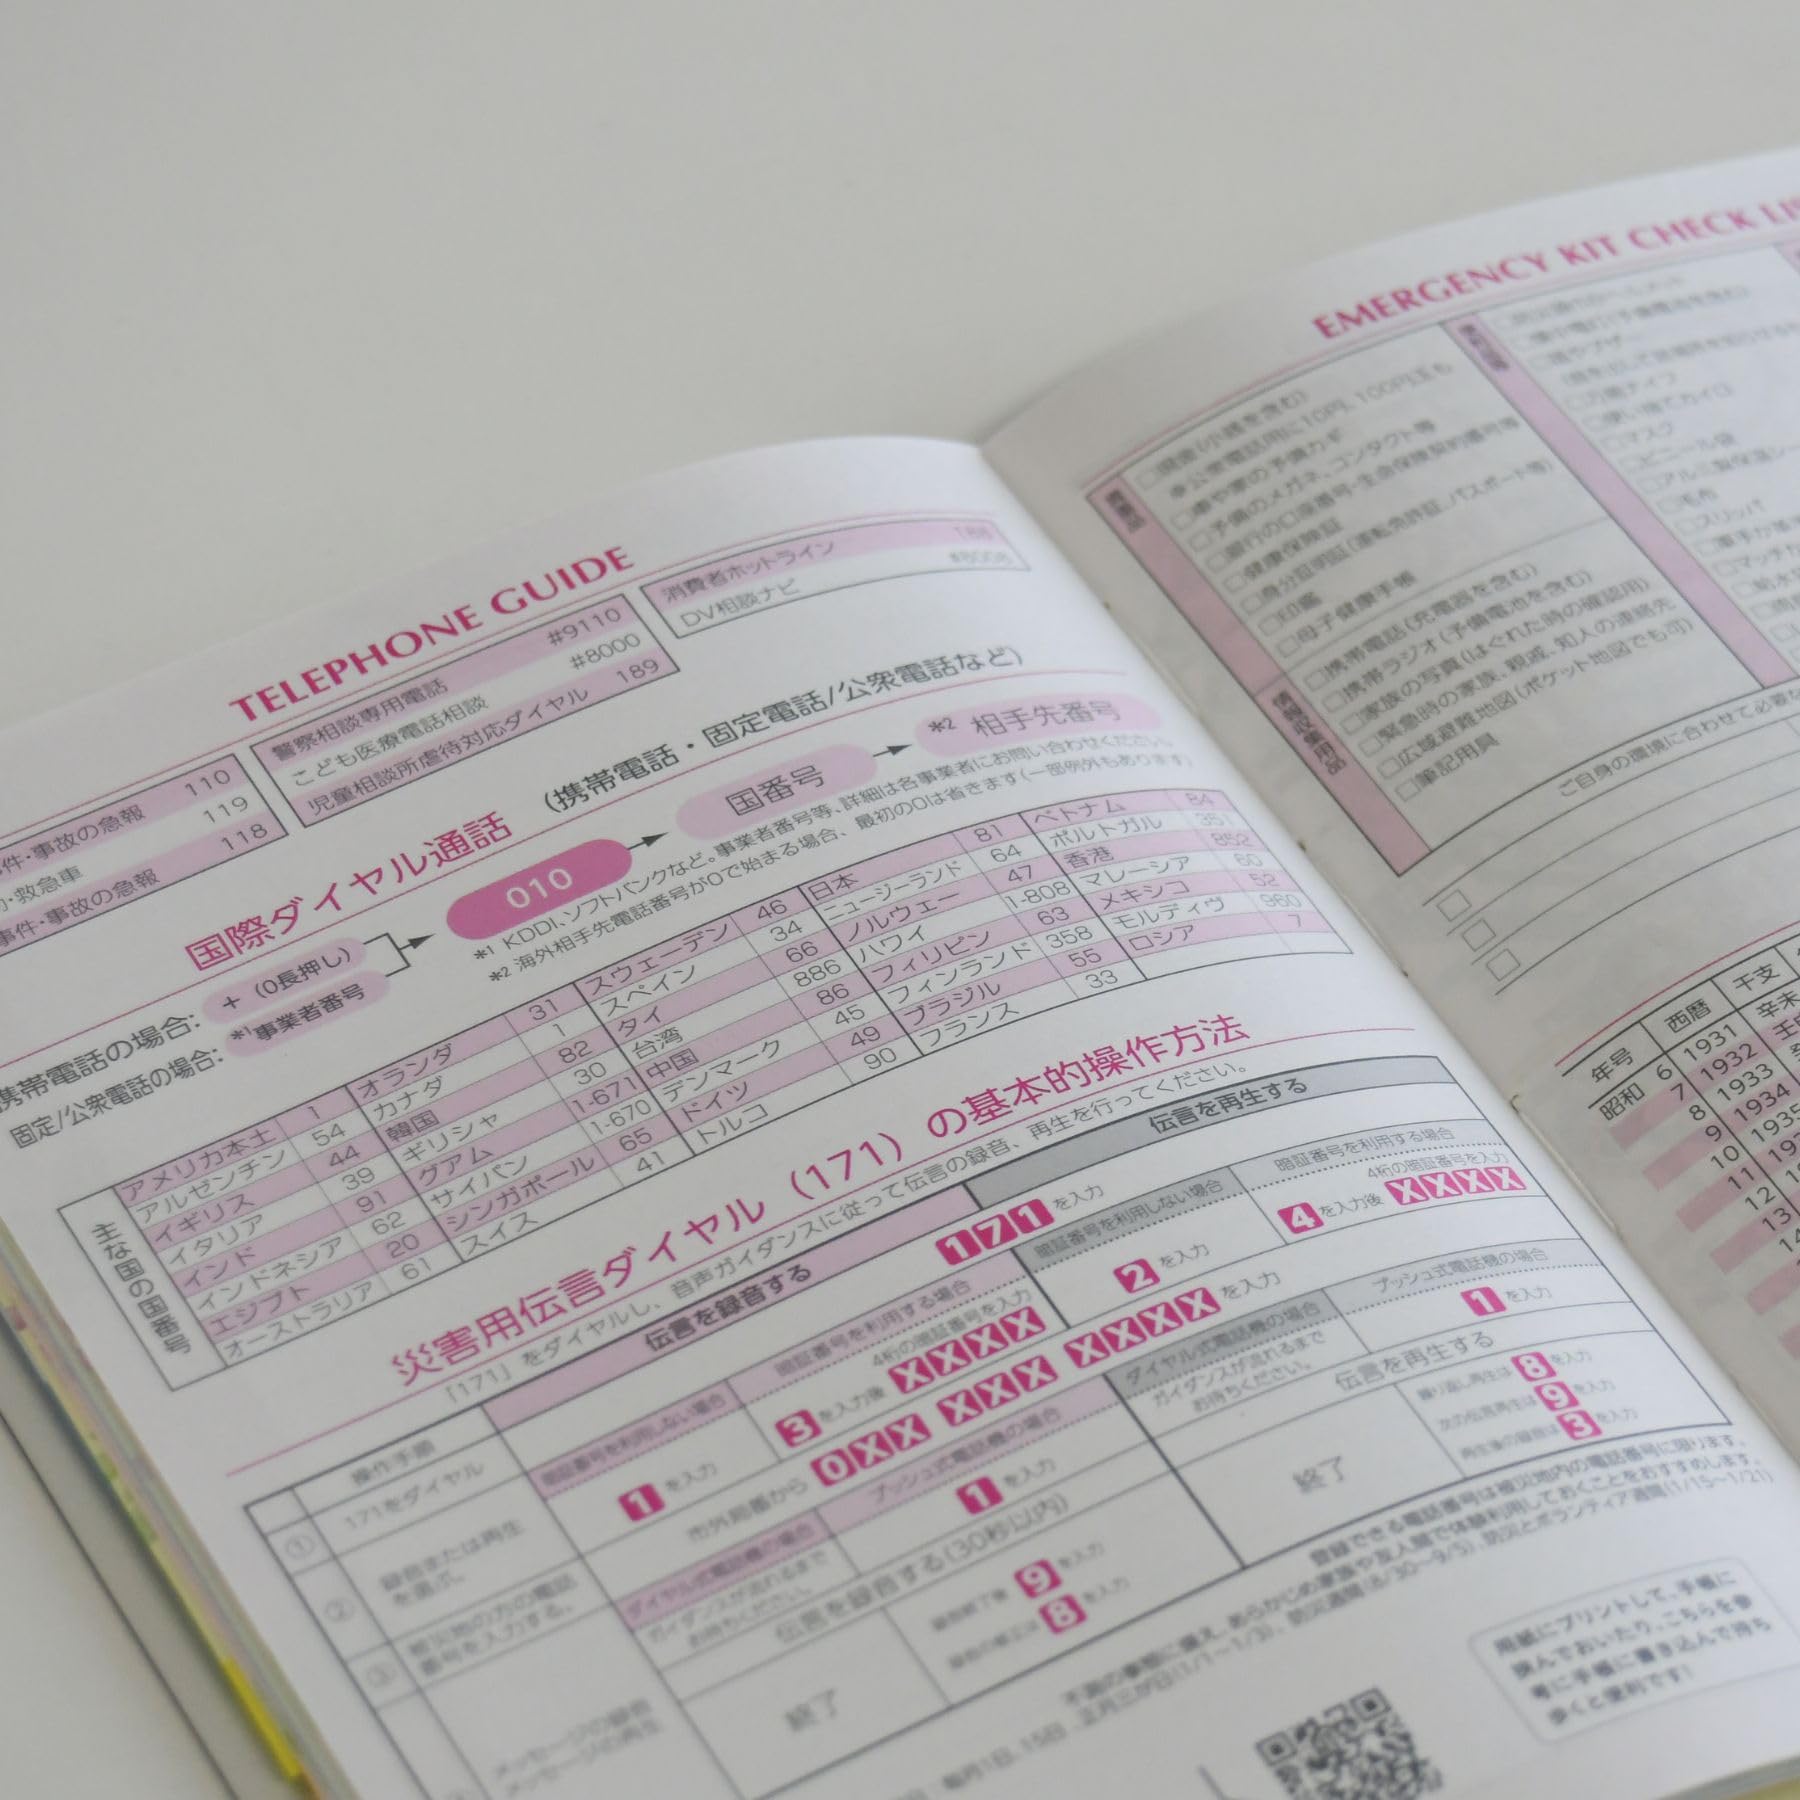 TELEPHONE GUIDE
事件・事故の急報 110
救急車 119
事件・事故の急報 118
警察相談専用電話 #9110
こども医療電話相談 #8000
児童相談所虐待対応ダイヤル 189
消費者ホットライン 188
DV相談ナビ #8008
国際ダイヤル通話 (携帯電話・固定電話/公衆電話など)
携帯電話の場合: + (0長押し)
固定/公衆電話の場合: *1 事業者番号
010
国番号
*2 相手先番号
*1 KDDI、ソフトバンクなど。事業者番号等、詳細は各事業者にお問い合わせください。
*2 海外相手先電話番号が0で始まる場合、最初の0は省きます(一部例外もあります)
主な国の国番号
アメリカ本土 1
アルゼンチン 54
イギリス 44
イタリア 39
インド 91
インドネシア 62
エジプト 20
オーストラリア 61
オランダ 31
カナダ 1
韓国 82
ギリシャ 30
グアム 1-671
サイパン 1-670
シンガポール 65
スイス 41
スウェーデン 46
スペイン 34
タイ 66
台湾 886
中国 86
デンマーク 45
ドイツ 49
トルコ 90
日本 81
ニュージーランド 64
ノルウェー 47
ハワイ 1-808
フィリピン 63
フィンランド 358
ブラジル 55
フランス 33
ベトナム 84
ポルトガル 351
香港 852
マレーシア 60
メキシコ 52
モルディヴ 960
ロシア 7
災害用伝言ダイヤル(171)の基本的操作方法
「171」をダイヤルし、音声ガイダンスに従って伝言の録音、再生を行ってください。
操作手順
伝言を録音する
伝言を再生する
① 171をダイヤル
171を入力
② 録音または再生
を選ぶ。
暗証番号を利用しない場合
1を入力
暗証番号を利用する場合
4桁の暗証番号を入力
3を入力後 XXXX
暗証番号を利用しない場合
2を入力
暗証番号を利用する場合
4桁の暗証番号を入力
4を入力後 XXXX
③ 被災地の方の電話
番号を入力する。
市外局番から 0XX XXX XXXX を入力
ダイヤル式電話機の場合
ガイダンスが流れるまで
お待ちください。
プッシュ式電話機の場合
1を入力
ダイヤル式電話機の場合
ガイダンスが流れるまで
お待ちください。
プッシュ式電話機の場合
1を入力
メッセージの録音
メッセージの再生
伝言を録音する(30秒以内)
終了
9を入力
8を入力
伝言を再生する
終了
繰り返し再生は 8を入力
次の伝言再生は 9を入力
再生後の録音は 3を入力
登録できる電話番号は被災地内の電話番号に限ります。
不測の事態に備え、あらかじめ家族や友人間で体験利用しておくことをおすすめします。
毎月1日、15日、正月三が日(1/1~1/3)、防災週間(8/30~9/5)、防災とボランティア週間(1/15~1/21)
用紙にプリントして、手帳に
挟んでおいたり、こちらを参
考に手帳に書き込んで持ち
歩くと便利です!
EMERGENCY KIT CHECK LIS
貴重品
□現金(小銭を含む)
※公衆電話用に10円、100円玉も
□車や家の予備カギ
□予備のメガネ、コンタクト等
□銀行の口座番号・生命保険契約番号等
□健康保険証
□身分証明証(運転免許証、パスポート等)
□印鑑
□母子健康手帳
□携帯電話(充電器を含む)
□携帯ラジオ(予備電池を含む)
□家族の写真(はぐれた時の確認用)
□緊急時の家族、親戚、知人の連絡先
□広域避難地図(ポケット地図でも可)
□筆記用具
□万能ナイフ
□使い捨てカイロ
□マスク
□ビニール袋
□アルミ製保温シー
□毛布
□スリッパ
ご自身の環境に合わせて必要な
年号 西暦 干支
昭和 6 1931 辛未
7 1932 壬申
8 1933
9 1934
10 1935
11
12
13